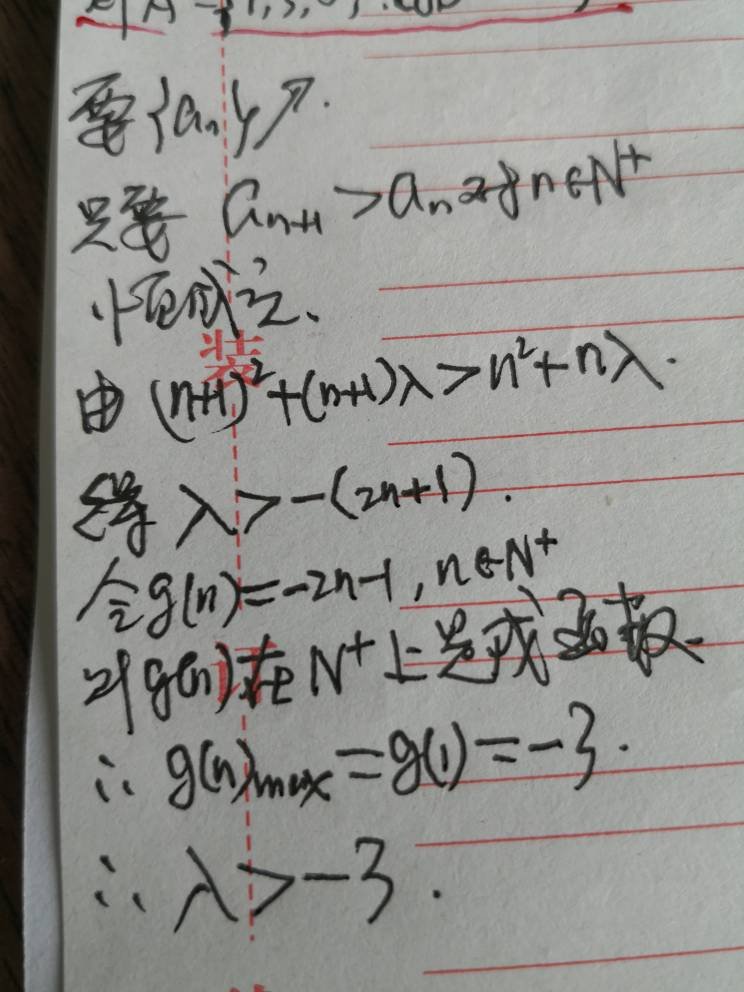 则A={1,3,
要{an}↗.
只要 an+1>an对n∈N+
恒成立.
装
由 (n+1)²+(n+1)λ>n²+nλ.
得 λ>-(2n+1).
令g(n)=-2n-1,n∈N+
则g(n)在N+上是减函数.
∴ g(n)max=g(1)=-3.
∴ λ>-3.